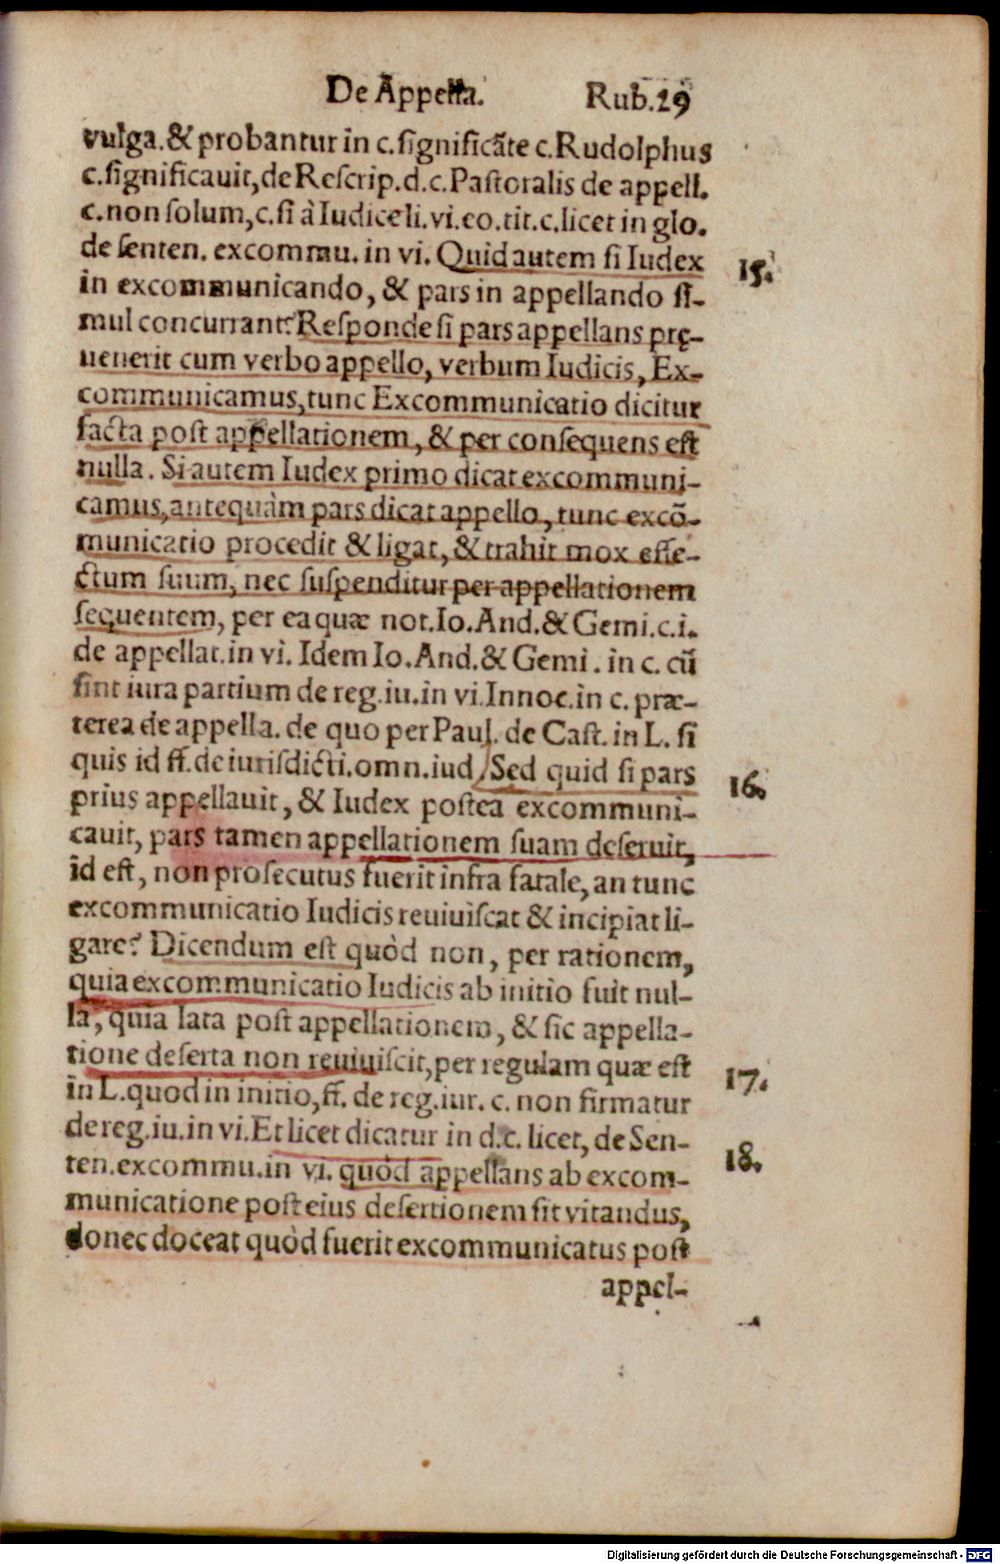 De Appella. Rub.29
vulga.& probantur in c.significāte c.Rudolphus
c.significavit,de Rescrip.d.c.Pastoralis de appell.
c.non solum,c.si à Iudice li.vi.eo.tit.c.licet in glo.
de senten. excommu. in vi. Quid autem si Iudex 15.
in excommunicando, & pars in appellando si-
mul concurrant? Responde si pars appellans prę-
uenerit cum verbo appello, verbum Iudicis, Ex-
communicamus,tunc Excommunicatio dicitur
facta post appellationem, & per consequens est
nulla. Si autem Iudex primo dicat excommuni-
camus,antequàm pars dicat appello, tunc excō-
municatio procedit & ligat, & trahit mox effe-
ctum suum, nec suspenditur per appellationem
sequentem, per ea quæ not.Io.And.& Gemi.c.i.
de appellat.in vi. Idem Io.And.& Gemi. in c. cū
sint iura partium de reg.iu.in vi.Innoc.in c. præ-
terea de appella. de quo per Paul. de Cast. in L. si
quis id ff.de iurisdicti.omn.iud. Sed quid si pars 16.
prius appellauit, & Iudex postea excommuni-
cauit, pars tamen appellationem suam deseruit,
id est, non prosecutus fuerit infra fatale, an tunc
excommunicatio Iudicis reuiuiscat & incipiat li-
gare? Dicendum est quòd non, per rationem,
quia excommunicatio Iudicis ab initio fuit nul-
la, quia lata post appellationem, & sic appella-
tione deserta non reuiuiscit,per regulam quæ est 17.
in L.quod in initio,ff. de reg.iur. c. non firmatur
de reg.iu.in vi.Et licet dicatur in d.c. licet, de Sen- 18.
ten.excommu.in vi. quòd appellans ab excom-
municatione post eius desertionem sit vitandus,
donec doceat quòd fuerit excommunicatus post
appel-
Digitalisierung gefördert durch die Deutsche Forschungsgemeinschaft - DFG